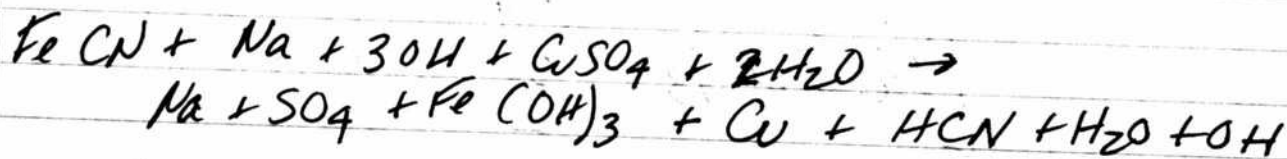 Fe CN + Na + 3OH + CuSO4 + 2H2O →
Na + SO4 + Fe (OH)3 + Cu + HCN + H2O + OH